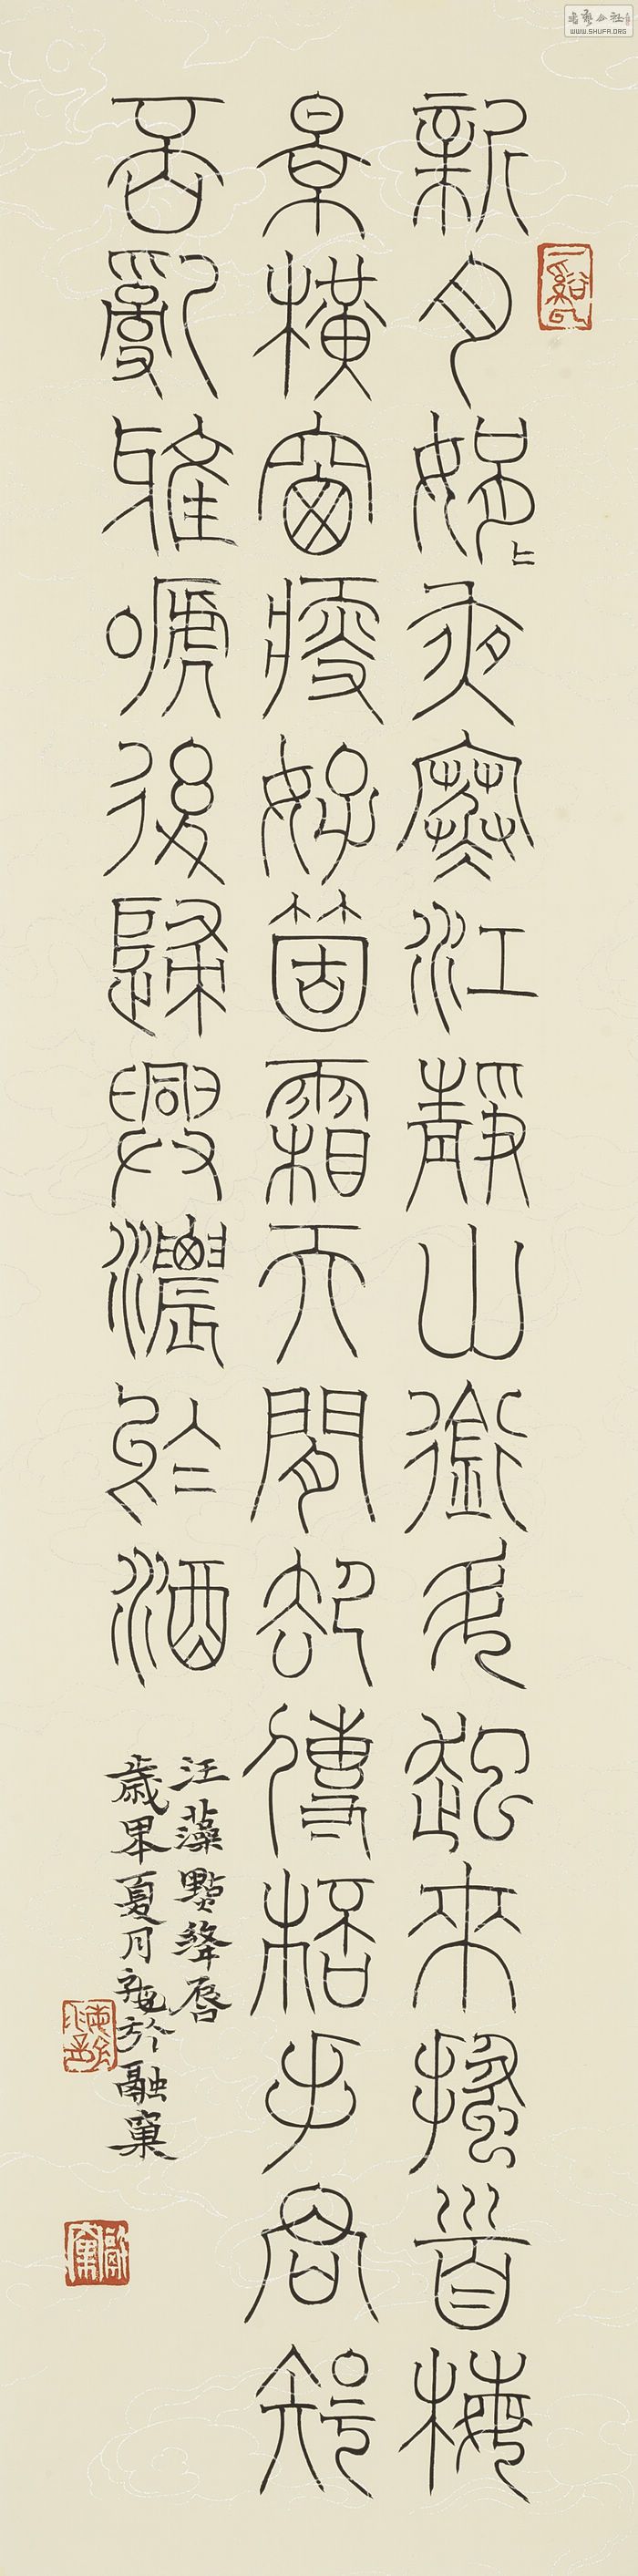 新月娟〻夜寒江靜山銜斗起來搔首梅
景橫窗瘦好箇霜天閒卻傳桮手君知
否亂雅嗁後歸興濃於酒
汪藻點絳唇
歲畢夏月於融巢
書法公社
WWW.SHUFA.ORG